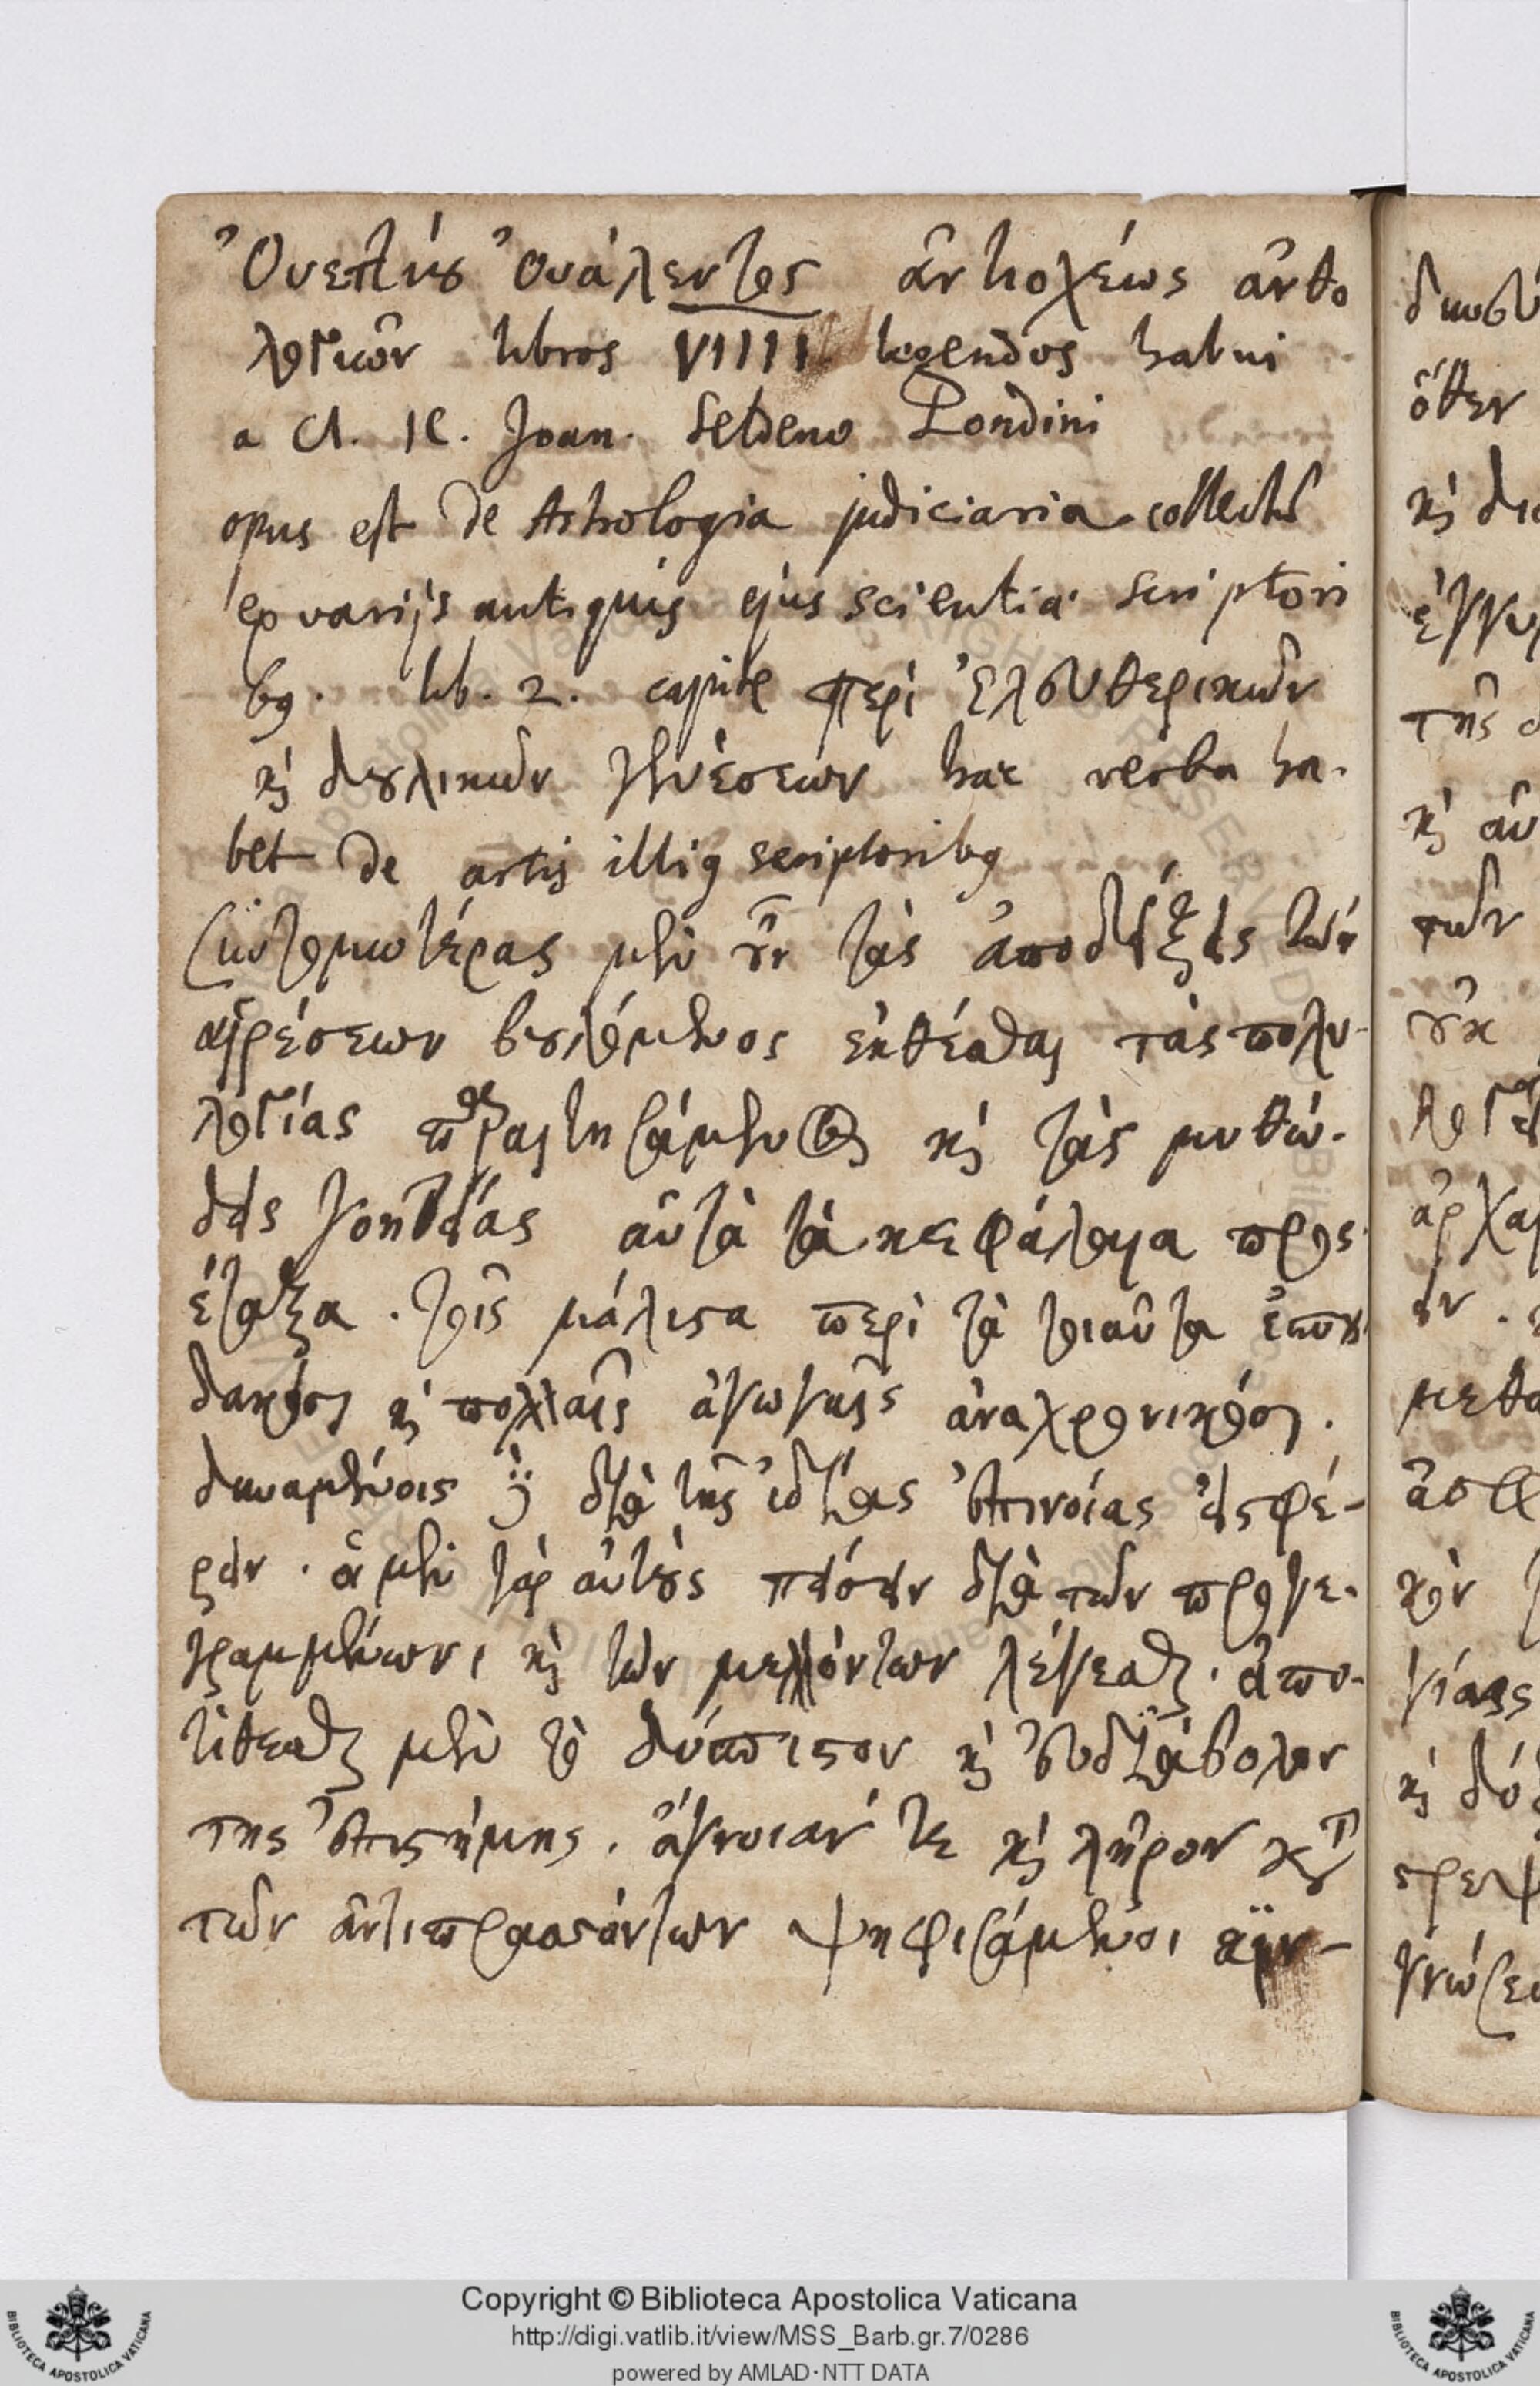 Ὀυεττίου Ὀυάλεντος ἀντιοχέως ἀνθο
λογικῶν libros VIIII legendos habui
a Cl. V. Joan. Seldeno Londini
opus est de Astrologia judiciaria collectū
ex varijs antiquis ejus scientiæ scriptori
bꝯ. lib. 2. capite περὶ ἐλευθερικῶν
κὶ δουλικῶν γενέσεων hæc verba ha-
bet de artis illiꝯ scriptoribꝯ
Συντομωτέρας μὲν οὖν τὰς ἀποδείξεις τῶν
αἱρέσεων βουλόμενος ἐκθέσθαι τὰς πολυ-
λογίας παραιτησάμενος κὶ τὰς μυθώ-
δεις γοητείας αὐτὰ τὰ κεφάλαια προς
έταξα . τοῖς μάλιστα περὶ τὰ τοιαῦτα ἐσπου
δακόσι κὶ πολλαῖς ἀγωγαῖς ἀναχρονικόσι.
δυναμένοις δὲ διὰ τῆς ἰδίας ἐπινοίας εἰσφέ-
ρειν . ἃ μὲν γὰρ αὐτοὺς πείσειν διὰ τῶν προγε-
γραμμένων, κὶ τῶν μελλόντων λέγεσθαι . ἀπο-
τίθεσθαι μὲν τὸ δύσπιστον κὶ εὐδιάβολον
της ἐπιστήμης . ἄγνοιαν τε κὶ λῆρον κατὰ
τῶν ἀντιπρασσόντων ψηφισάμενοι
δικο
ὅθεν
κὶ δι
ἐγγυ
τῆς
κὶ αὐ
τῶν
οὐκ
λογ
ἀρχαι
μεθο
ἀστ
κὸν
γίας
κὶ δόξ
στρεψ
γνώσε
Copyright © Biblioteca Apostolica Vaticana
http://digi.vatlib.it/view/MSS_Barb.gr.7/0286
powered by AMLAD·NTT DATA
BIBLIOTECA APOSTOLICA VATICANA
BIBLIOTECA APOSTOLICA VATICANA